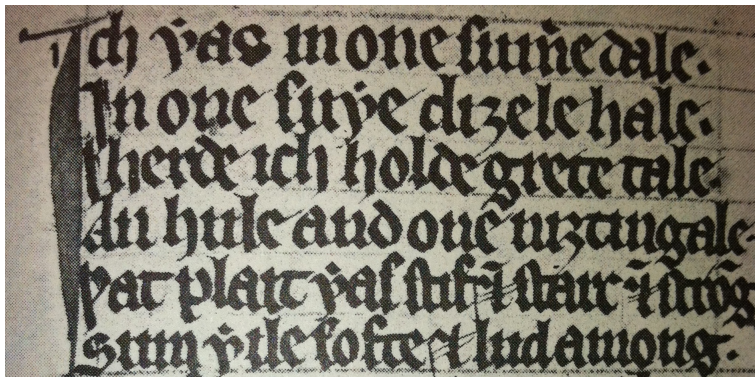 Ich ƿas in one sum̄e dale·
In one suþe diȝele hale·
Iherde ich holde grete tale·
An hule and one niȝtingale·
Þat plait ƿas stif ⁊ starc ⁊ strōg
Sum ƿile softe ⁊ lud among·